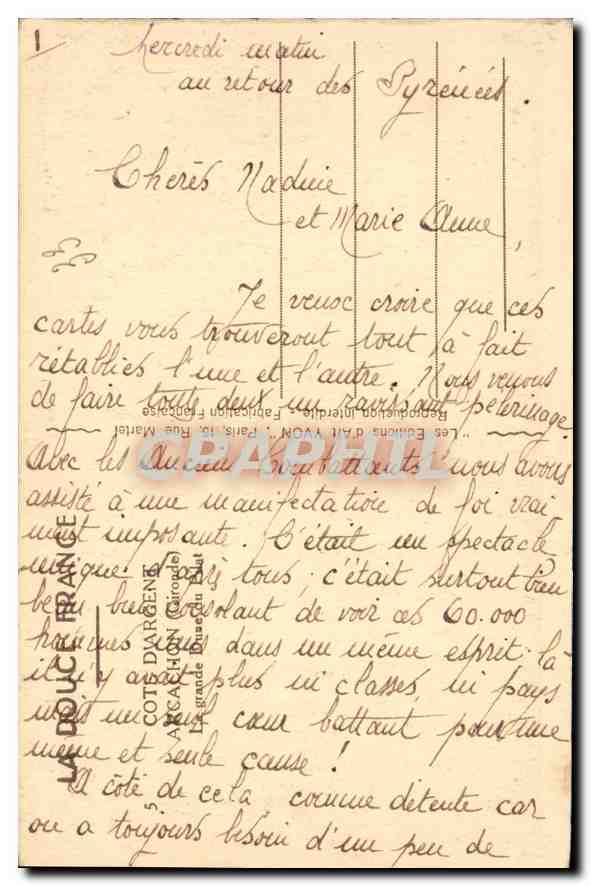 1
Mercredi matin
au retour des Pyrénées.
Chères Nadine
et Marie Anne,
Je veux croire que ces
cartes vous trouveront tout à fait
rétablies l'une et l'autre. Nous venons
de faire toute deux un ravissant pèlerinage
Avec les Anciens Combattants nous avons
assisté à une manifestation de foi vrai-
ment imposante. C'était un spectacle
unique tous, c'était surtout bien
beau bien consolant de voir ces 60.000
hommes unis dans un même esprit. là
il n'y avait plus ni classes, ni pays
mais un seul cœur battant pour une
même et seule cause !
A côté de cela, comme détente car
on a toujours besoin d'un peu de
"Les Editions d'Art YVON", Paris, 15, Rue Martel
Reproduction interdite. Fabrication Française
LA DOUCE FRANCE
COTE D'ARGENT
5 ARCACHON (Gironde)
La grande Dune du Pilat
CPAPHIL